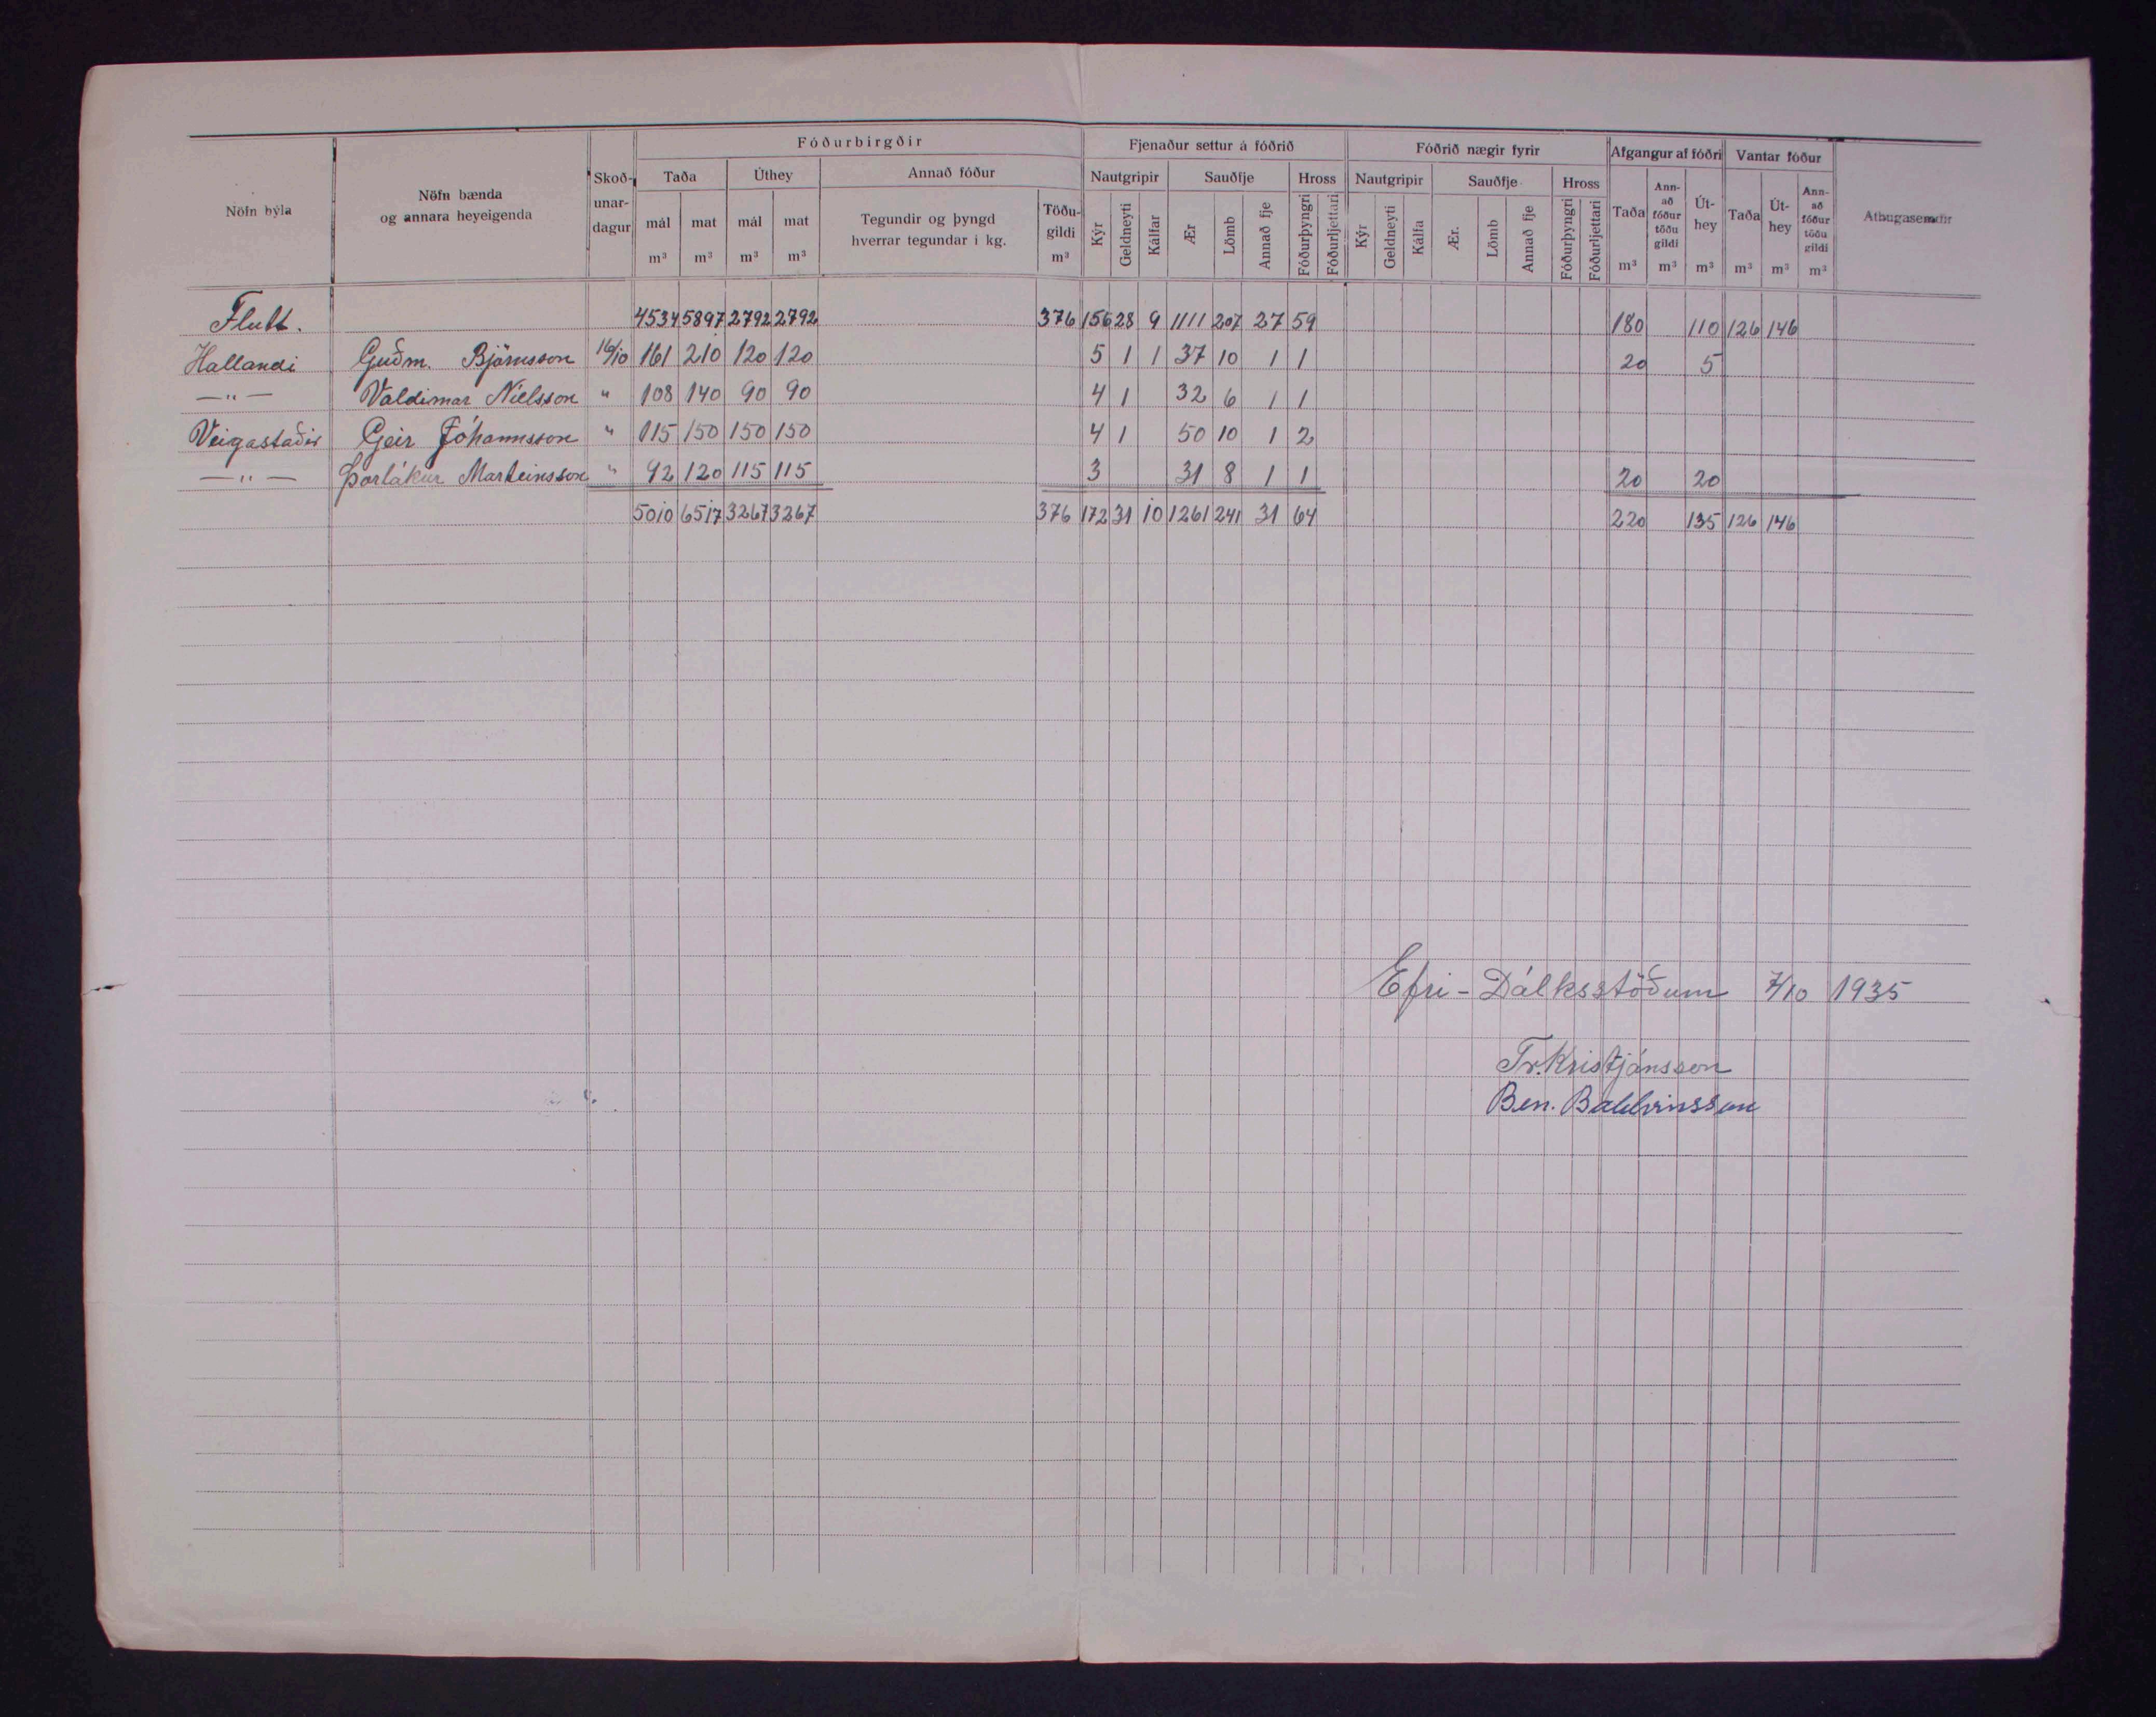 Fóðurbirgðir Fjenaður settur á fóðrið Fóðrið nægir fyrir Afgangur af fóðri Vantar fóður
Nöfn býla Nöfn bænda og annara heyeigenda Skoð-unar-dagur Taða Úthey Annað fóður Nautgripir Sauðfje Hross Nautgripir Sauðfje Hross Taða Ann-að fóður töðu gildi Út-hey Taða Út-hey Ann-að fóður töðu gildi Athugasemdir
mál mat mál mat Tegundir og þyngd hverrar tegundar í kg. Töðu-gildi Kýr Geldneyti Kálfar Ær Lömb Annað fje Fóðurþyngri Fóðurljettari Kýr Geldneyti Kálfa Ær. Lömb Annað fje Fóðurþyngri Fóðurljettari
m³ m³ m³ m³ m³ m³ m³ m³ m³ m³ m³
Flutt. 4534 5897 2792 2792 376 156 28 9 1111 207 27 59 180 110 126 146
Hallandi Guðm. Björnsson 16/10 161 210 120 120 5 1 1 37 10 1 1 20 5
— " — Valdimar Níelsson " 108 140 90 90 4 1 32 6 1 1
Veigastaðir Geir Jóhannsson " 115 150 150 150 4 1 50 10 1 2
— " — Þorlákur Marteinsson " 92 120 115 115 3 31 8 1 1 20 20
5010 6517 3267 3267 376 172 31 10 1261 241 31 64 220 135 126 146
Efri-Dálksstöðum 7/10 1935
Tr. Kristjánsson
Ben. Baldvinsson